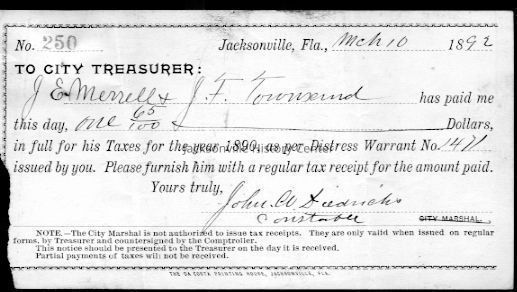 No. 250 Jacksonville, Fla., Mch 10 1892
TO CITY TREASURER:
J E Merrell & J. F. Townsend has paid me
this day, one 65/100 Dollars,
in full for his Taxes for the year 1890, as per Distress Warrant No. 1471
Jacksonville History Center
issued by you. Please furnish him with a regular tax receipt for the amount paid.
Yours truly,
John W Diedrichs
Constable CITY MARSHAL.
NOTE.—The City Marshal is not authorized to issue tax receipts. They are only valid when issued on regular
forms, by Treasurer and countersigned by the Comptroller.
This notice should be presented to the Treasurer on the day it is received.
Partial payments of taxes will not be received.
THE DA COSTA PRINTING HOUSE, JACKSONVILLE, FLA.